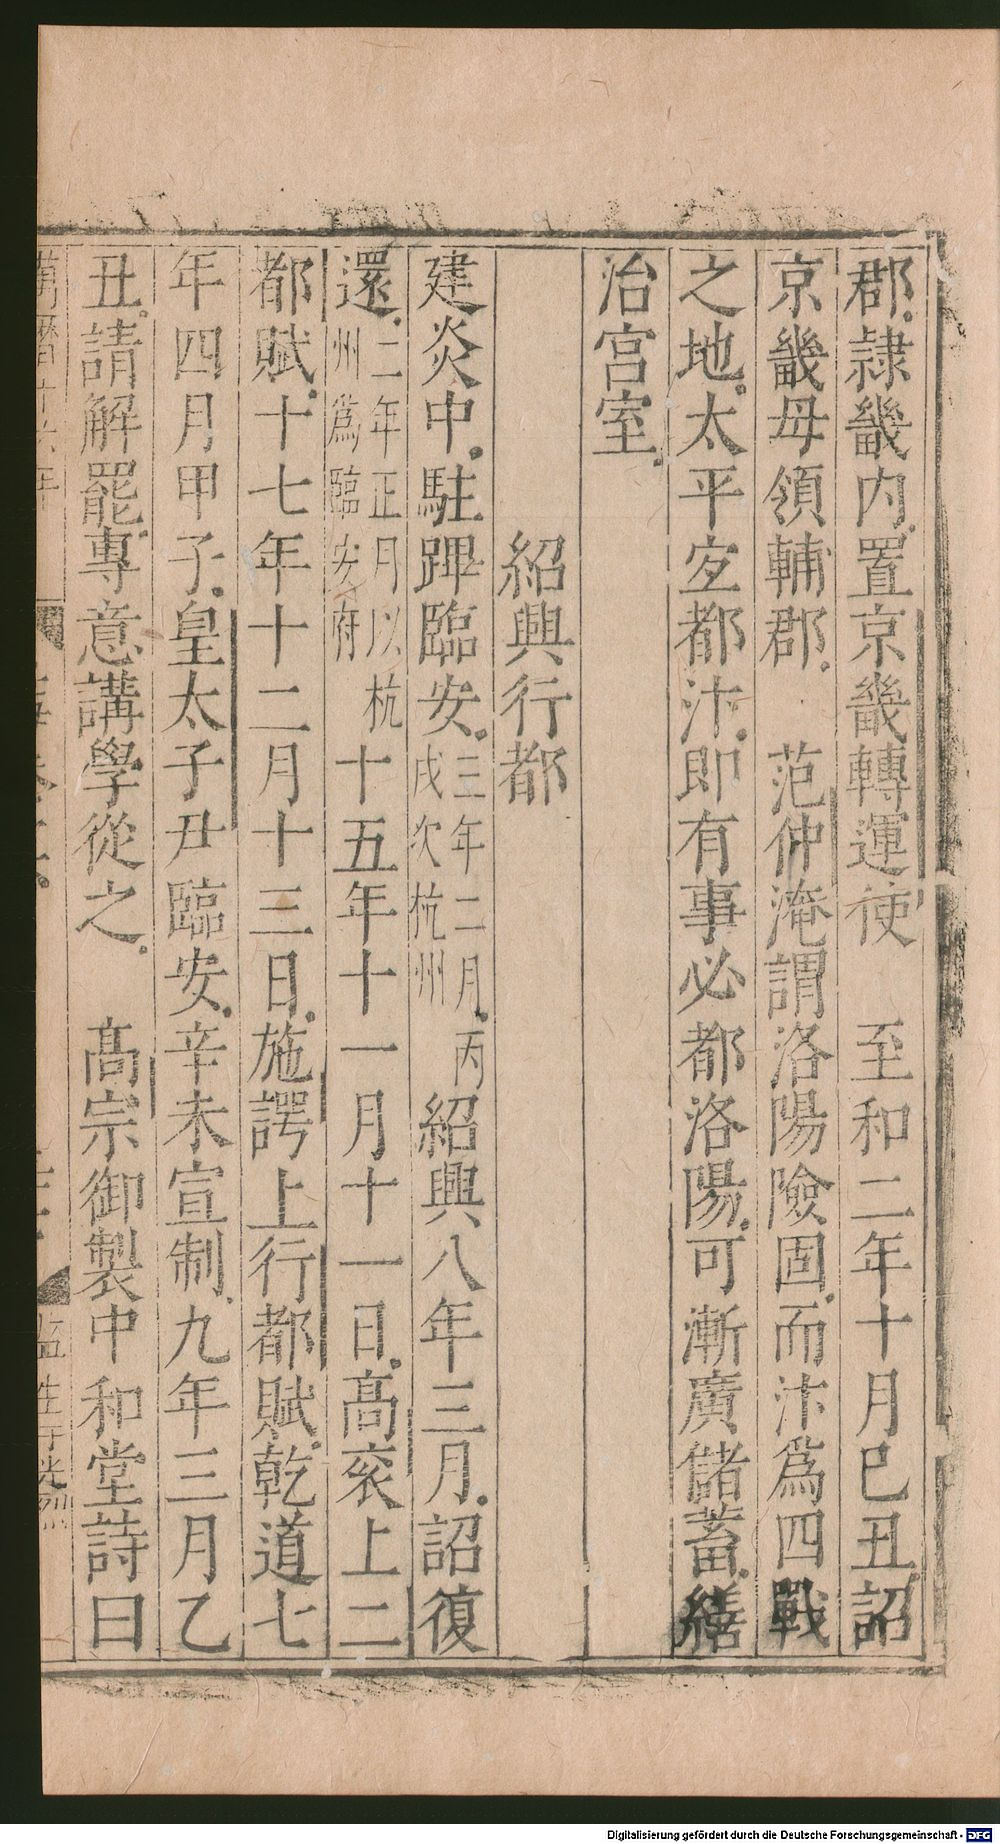 郡。隷畿内。置京畿轉運使　至和二年十月巳丑詔
京畿毋領輔郡。　范仲淹謂洛陽險固。而汴爲四戰
之地。太平㝎都汴。即有事必都洛陽。可漸廣儲蓄。繕
治宮室。
紹興行都
建炎中。駐蹕臨安。三年二月。丙戌次杭州紹興八年三月。詔復
還。二年正月以杭州爲臨安府十五年十一月十一日。高衮上二
都賦。十七年十二月十三日。施諤上行都賦。乾道七
年四月甲子。皇太子尹臨安。辛未宣制。九年三月乙
丑。請解罷。專意講學從之。　高宗御製中和堂詩曰
萬曆十六年
監生于光烈
Digitalisierung gefördert durch die Deutsche Forschungsgemeinschaft - DFG